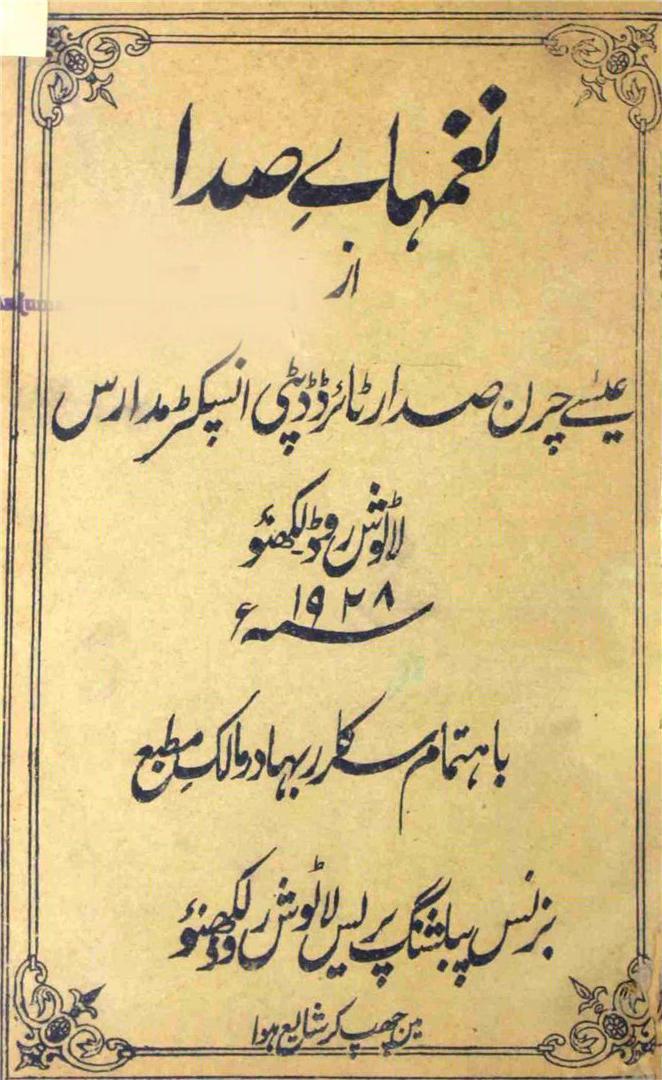 نغمہاے صدا
از
عیسے چرن صدا رٹائرڈ ڈپٹی انسپکٹر مدارس
لاٹوش روڈ لکھنؤ
سنہ ۱۹۲۸ء
باہتمام بہادر مالکِ مطبع
بزنس پبلشنگ پریس لاٹوش روڈ لکھنؤ
مین چھپ کر شایع ہوا